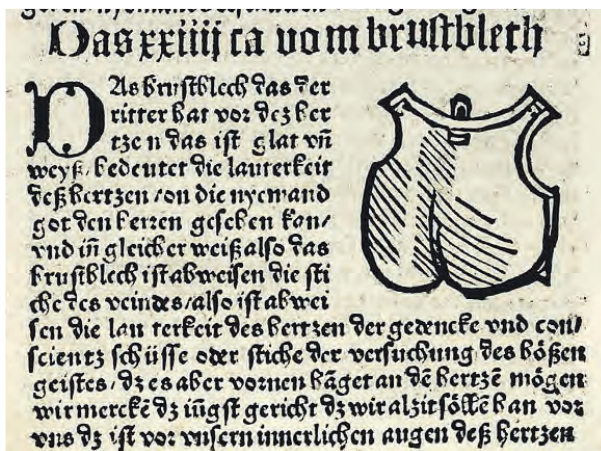 Das xxiiij ca vom brustblech
DAs brustblech das der
ritter hat vor dez her
tze n das ist glat vñ
weyß / bedeutet die lauterkeit
deß hertzen / on die nyemand
got den herren gesehen kan /
vnd iñ gleicher weiß also das
brustblech ist abweisen die sti
che des veindes / also ist abwei
sen die lau terkeit des hertzen der gedencke vnd con /
scientz schüsse oder stiche der versuchung des bößen
geistes / dz es aber vornen hãget an dẽ hertzẽ mögen
wir merckẽ dz iũgst gericht dz wir alzit söllẽ han vor
vns dz ist vor vnsern innerlichen augen deß hertzen